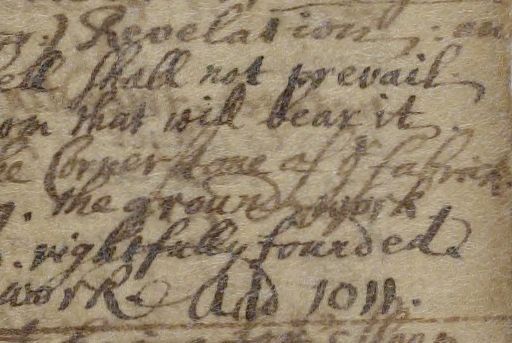 Revelation
shall not prevail
that will bear it.
Corner stone of yᵉ fabrick
. the ground work
. rightfully founded.
work. Add 1011.